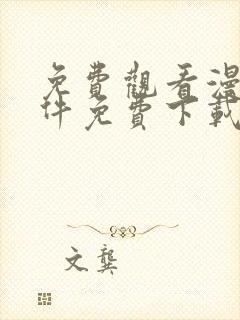 免費觀看漫
件免費下載
文龔